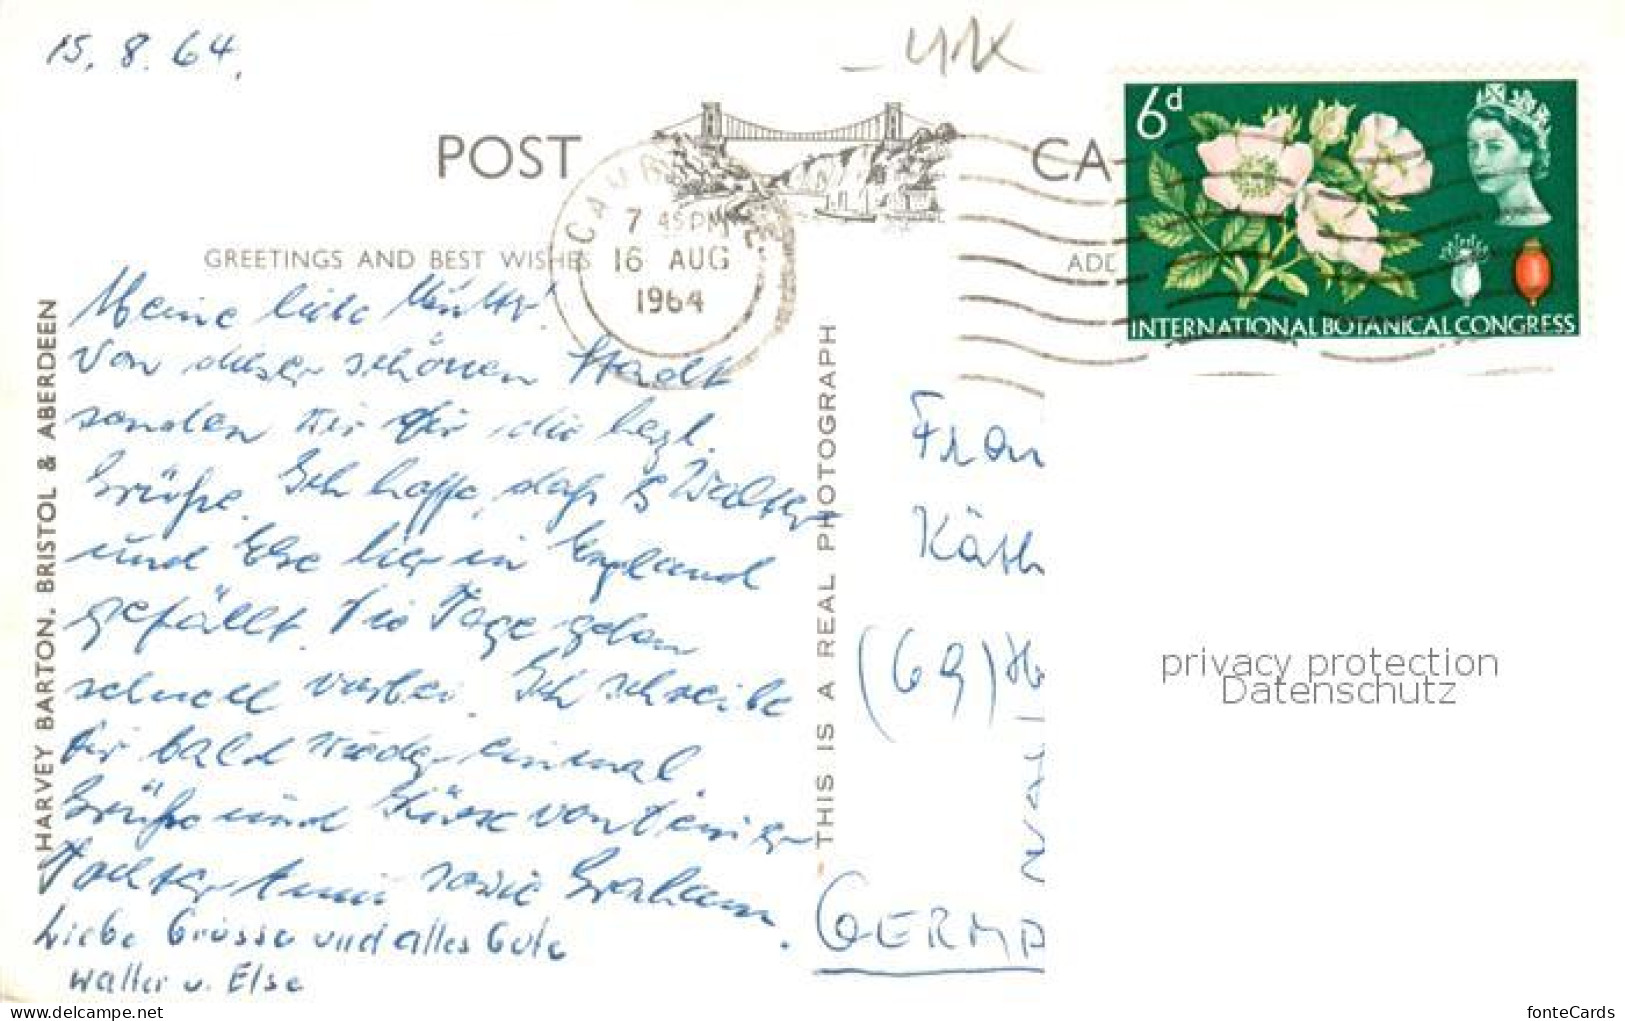 15. 8. 64.
POST CA
6d
INTERNATIONAL BOTANICAL CONGRESS
CAMBR
7 45 PM
16 AUG
1964
GREETINGS AND BEST WISHES
ADD
HARVEY BARTON. BRISTOL & ABERDEEN
Meine liebe Mutter!
Von dieser schönen Stadt
senden wir Dir die herzl.
Grüße. Ich hoffe, daß es Walter
und Else hier in England
gefällt. Die Tage gehen
schnell vorbei. Ich schreibe
Dir bald wieder einmal.
Grüße und Küsse von Deiner
Tochter Anni sowie Graham.
Liebe Grüsse und alles Gute
Walter u. Else
THIS IS A REAL PHOTOGRAPH
Frau
Käth
(69) H
GERMA
privacy protection
Datenschutz
www.delcampe.net
KH-Mayer
fonteCards